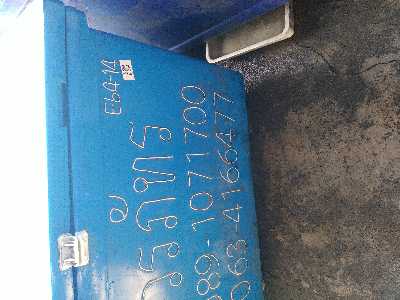 E64-14
วรภัทร
089-1071700
063-4166477